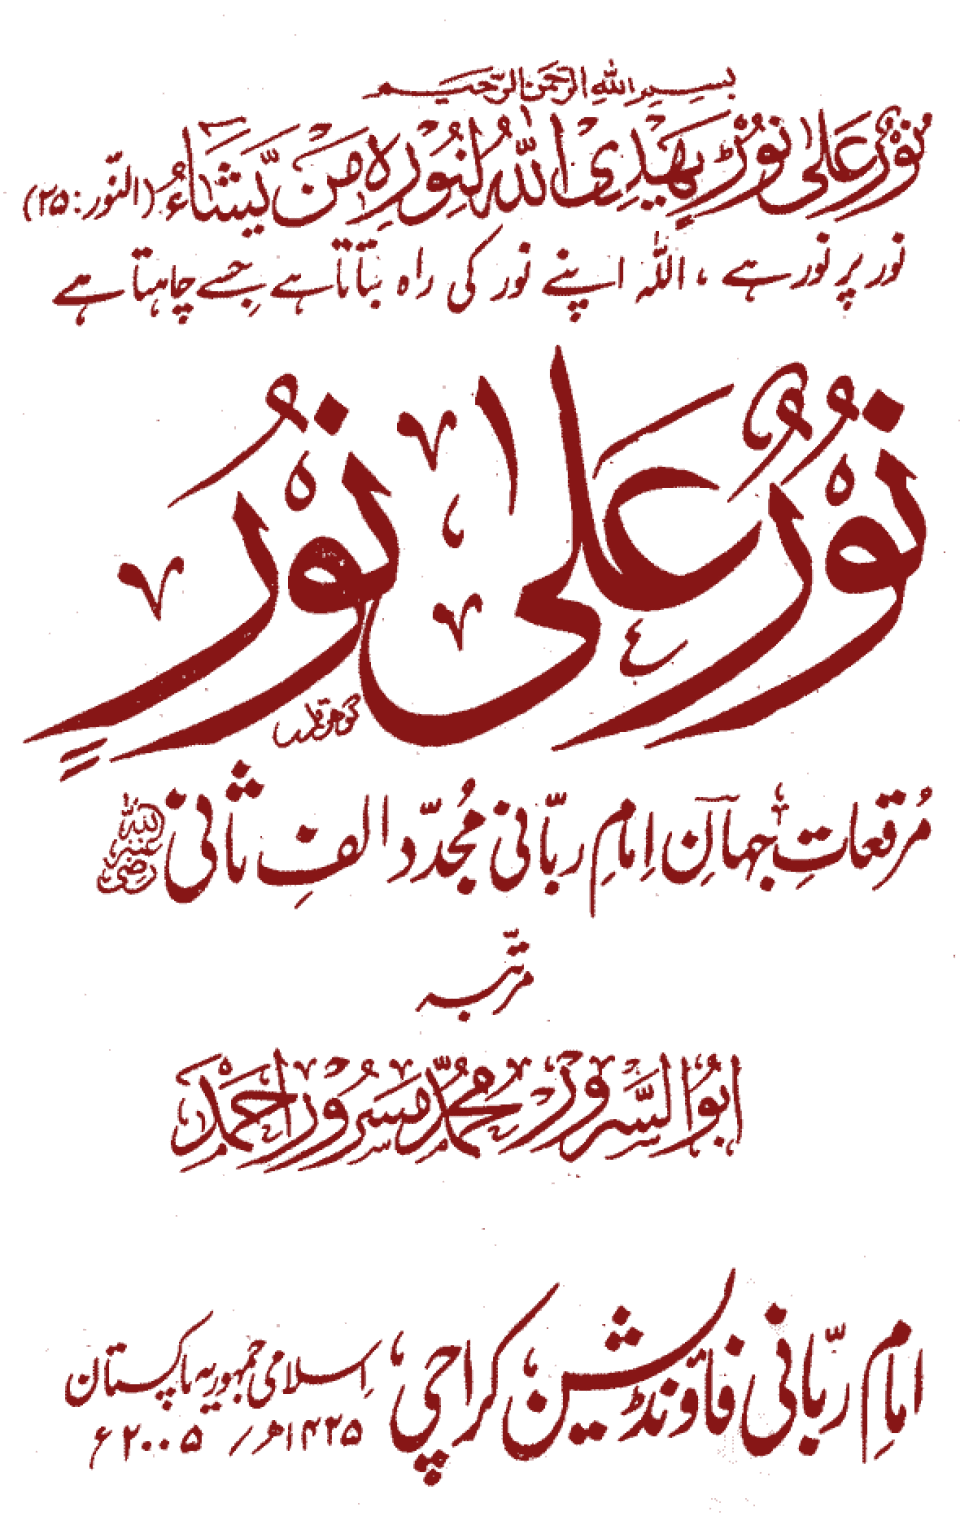 بسم الله الرحمن الرحيم
نُوْرٌ عَلٰی نُوْرٍ یَهْدِی اللّٰهُ لِنُوْرِهٖ مَنْ یَّشَآءُ (النّور: ۲۵)
نور پر نور ہے ، اللہ اپنے نور کی راہ بتاتا ہے جسے چاہتا ہے
نُوْرٌ عَلٰی نُوْرٍ
مُرقعاتِ جہانِ اِمامِ ربّانی مُجدّد الفِ ثانی رضی اللہ عنہ
مرتّبہ
ابُوالسَّرور مُحمّد مسرور احمد
امامِ ربّانی فاؤنڈیشن، کراچی،
اِسلامی جمہوریہ پاکستان
۱۴۲۵ھ / ۲۰۰۵ ء